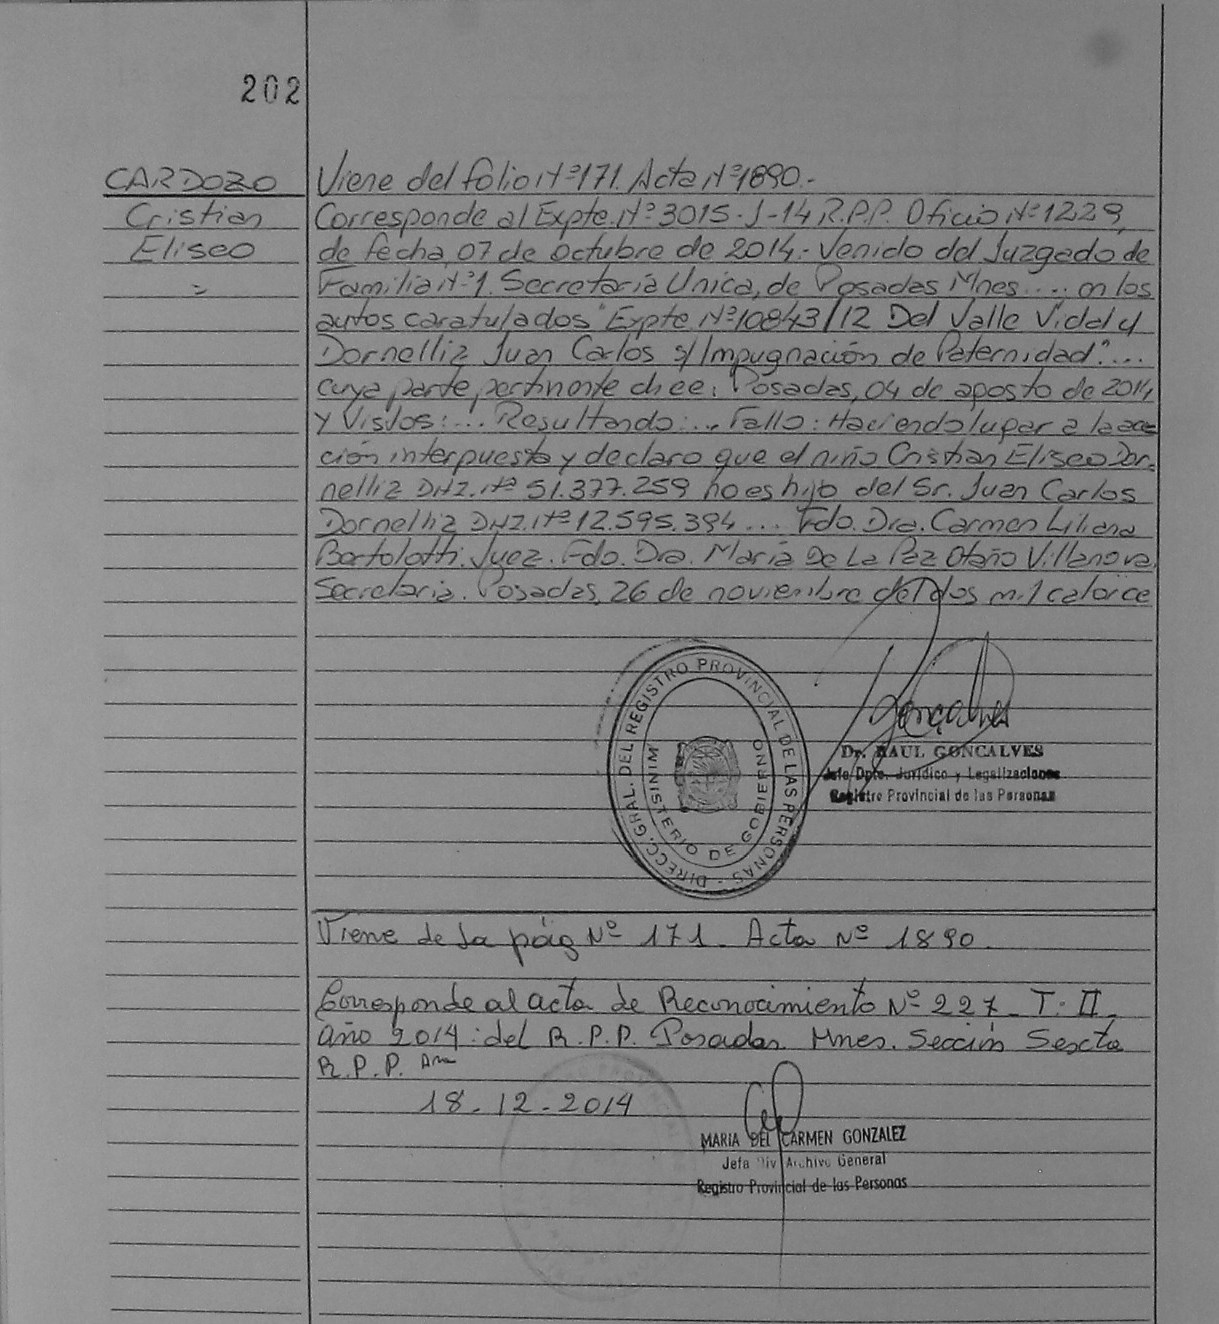 202
CARDOZO
Cristian
Eliseo
=
Viene del folio Nº 171. Acta Nº 1890.-
Corresponde al Expte. Nº 3015-J-14 R.P.P. Oficio Nº 1229,
de fecha 07 de octubre de 2014.- Venido del Juzgado de
Familia Nº 1. Secretaria Unica, de Posadas Mnes.... en los
autos caratulados "Expte Nº 10843/12 Del Valle Vidal y
Dornelliz Juan Carlos s/ Impugnación de Paternidad"....
cuya parte pertinente dice: Posadas, 04 de agosto de 2014
y Vistos:... Resultando:... Fallo: Haciendo lugar a la ac-
ción interpuesta y declaro que el niño Cristian Eliseo Dor-
nelliz DNI. Nº 51.377.259 no es hijo del Sr. Juan Carlos
Dornelliz DNI. Nº 12.595.394... Fdo. Dra. Carmen Liliana
Bartolotti. Juez. Fdo. Dra. María De La Paz Otaño Villanova.
Secretaria. Posadas, 26 de noviembre del dos mil catorce
DIRECC. GRAL. DEL REGISTRO PROVINCIAL DE LAS PERSONAS -
MINISTERIO DE GOBIERNO
Goncalves
Dr. RAUL GONCALVES
Jefe Dpto. Jurídico y Legalizaciones
Registro Provincial de las Personas
Viene de la pág Nº 171. Acta Nº 1890.
Corresponde al acta de Reconocimiento Nº 227 - T: II -
Año 2014 : del R.P.P. Posadas. Mnes. Sección Sexta
R.P.P.
18-12-2014
MARIA DEL CARMEN GONZALEZ
Jefa Div Archivo General
Registro Provincial de las Personas